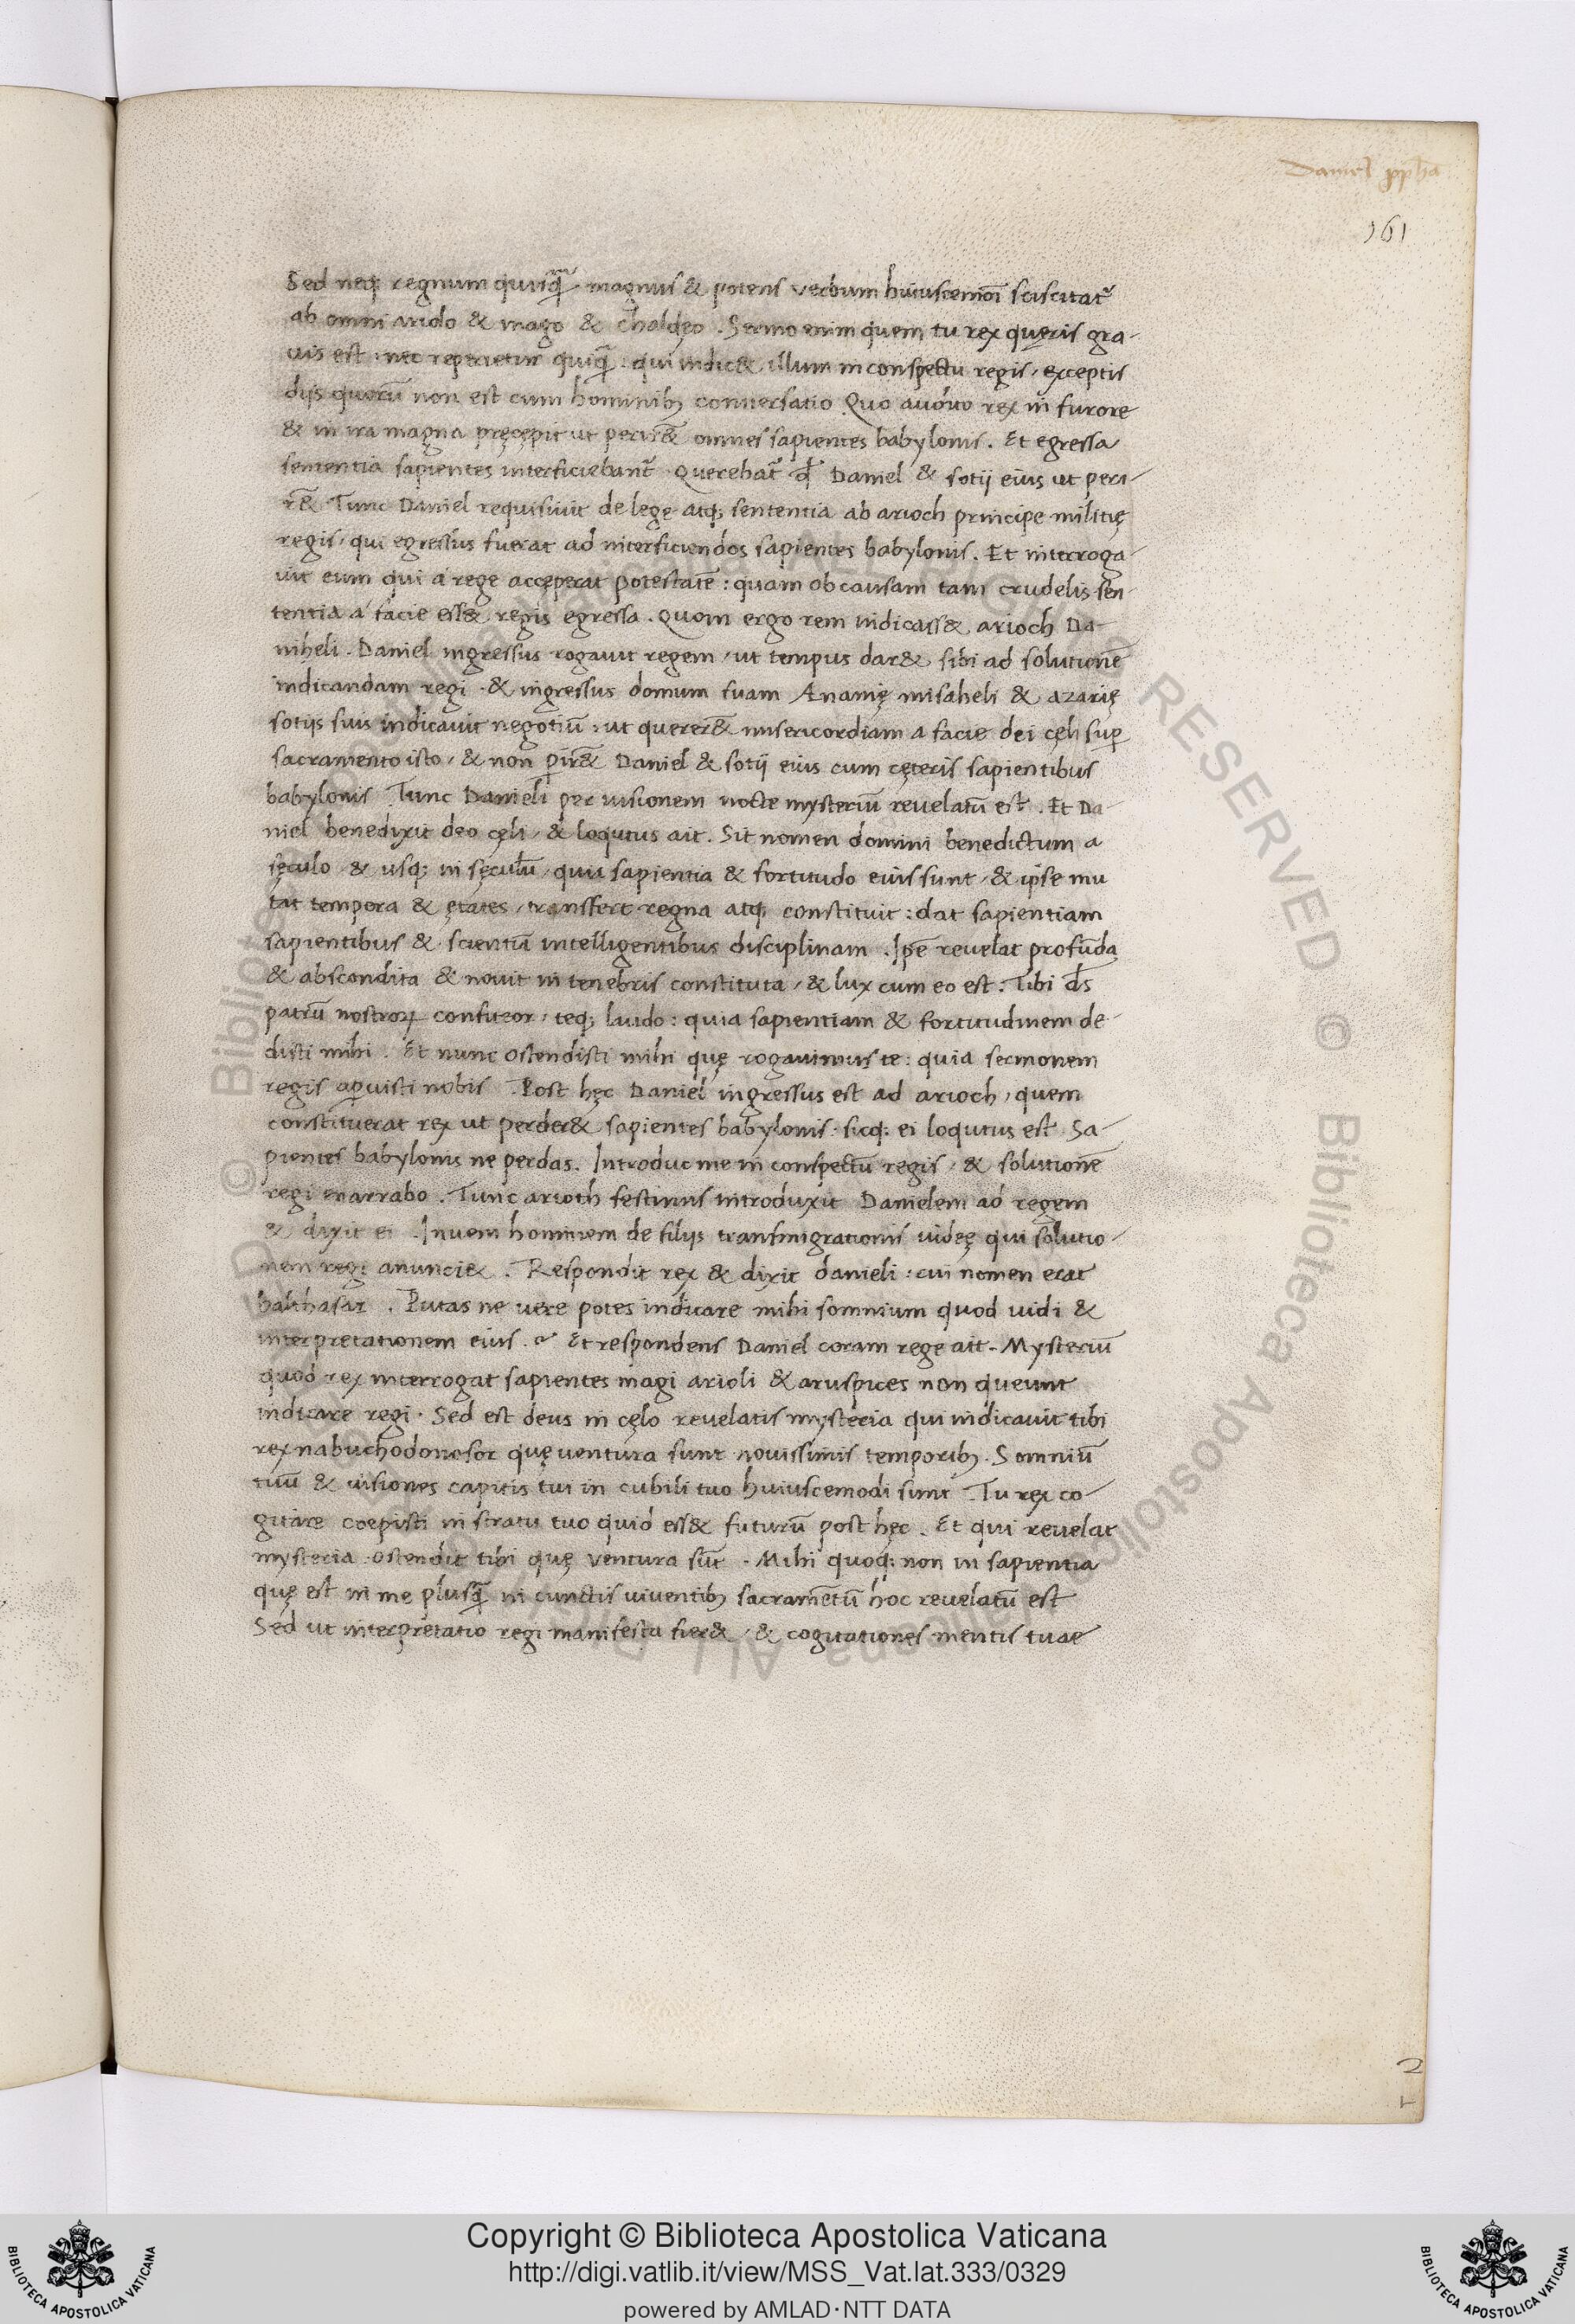 Daniel ppha
161
Sed neq; regnum quisq̃ magnus & potens verbum huiuscemoi sciscitat᷑
ab omni ariolo & mago & chaldęo . Sermo enim quem tu rex quęris gra-
uis est : nec reperietur quiq̃ : qui indic& illum in conspectu regis , exceptis
dijs quorũ non est cum hominib; conuersatio Quo audito rex in furore
& in ira magna pręcępit ut perir&̃ omnes sapientes babylonis . Et egressa
sententia sapientes interficiebant᷑ . Querebat᷑ q; Daniel & sotij eius ut peri-
r&̃ Tunc Daniel requisiuit de lege atq; sententia ab arioch principe militię
regis , qui egressus fuerat ad interficiendos sapientes babylonis . Et interroga-
uit eum qui a rege accęperat potestatẽ : quam ob causam tam crudelis sen-
tentia a facie ess& regis egressa . Quom ergo rem indicass& arioch Da-
niheli . Daniel ingressus rogauit regem , ut tempus dar& sibi ad solutionẽ
indicandam regi . & ingressus domum suam Ananię misaheli & azarię
sotijs suis indicauit negotiũ : ut querer&̃ misericordiam a facie dei cęli sup
sacramento isto , & non pir&̃ Daniel & sotij eius cum cęteris sapientibus
babylonis Tunc Danieli per uisionem nocte mysteriũ reuelatũ est . Et Da-
niel benedixit deo cęli , & loqutus ait . Sit nomen domini benedictum a
sęculo & usq; in sęculũ , quia sapientia & fortitudo eius sunt , & ipse mu
tat tempora & ętates , transfert regna atq; constituit : dat sapientiam
sapientibus & scientiũ intelligentibus disciplinam . Ipẽ reuelat profũda
& abscondita & nouit in tenebris constituta , & lux cum eo est . Tibi ds̃
patrũ nostroꝝ confiteor , teq; laudo : quia sapientiam & fortitudinem de-
disti mihi . Et nunc ostendisti mihi quę rogauimus te : quia sermonem
regis apuisti nobis . Post hęc Daniel ingressus est ad arioch , quem
constituerat rex ut perder& sapientes babylonis . sicq; ei loqutus est . Sa-
pientes babylonis ne perdas . Introduc me in conspectũ regis , & solutionẽ
regi enarrabo . Tunc arioth festinus introduxit Danielem ad regem
& dixit ei . Inueni hominem de filijs transmigrationis iudeę qui solutio-
nem regi anunci& . Respondit rex & dixit danieli : cui nomen erat
balthasar . Putas ne uere potes indicare mihi somnium quod uidi &
interpretationem eius . ? Et respondens Daniel coram rege ait . Mysteriũ
quod rex interrogat sapientes magi arioli & aruspices non queunt
indicare regi . Sed est deus in cęlo reuelatis mysteria qui indicauit tibi
rex nabuchodonosor quę uentura sunt nouissimis temporib; . Somniũ
tuũ & uisiones capitis tui in cubili tuo huiuscemodi sunt . Tu rex co-
gitare coepisti in stratu tuo quid ess& futurũ post hęc . Et qui reuelat
mysteria ostendit tibi quę uentura sũt . Mihi quoq; non in sapientia
quę est in me plusq̃ in cunctis uiuentib; sacramẽtũ hoc reuelatũ est
Sed ut interpretatio regi manifesta fier& , & cogitationes mentis tuae
Copyright © Biblioteca Apostolica Vaticana
http://digi.vatlib.it/view/MSS_Vat.lat.333/0329
powered by AMLAD·NTT DATA